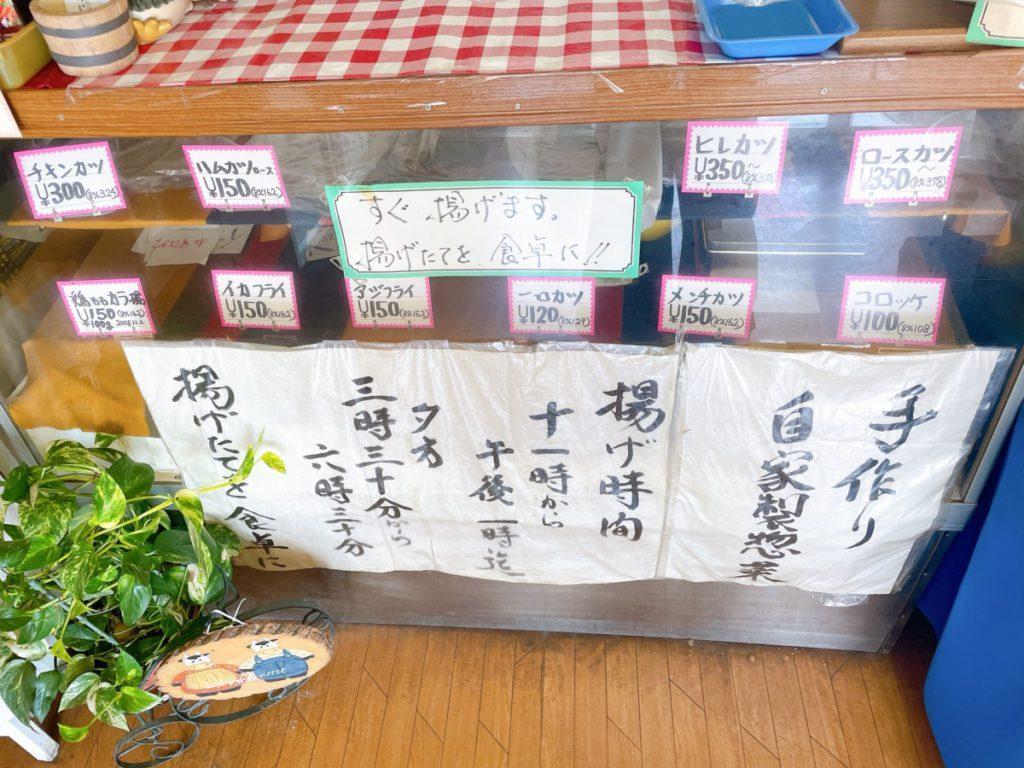 チキンカツ
¥300(8%324)
ハムカツロース
¥150(8%162)
すぐ揚げます。
揚げたてを食卓に!!
ヒレカツ
¥350〜
ロースカツ
¥350〜(8%378)
鶏ももカラ揚
¥150(8%162)
100g 200g以上
イカフライ
¥150(8%162)
アジフライ
¥150(8%162)
一口カツ
¥120(8%129)
メンチカツ
¥150(8%162)
コロッケ
¥100(8%108)
手作り
自家製惣菜
揚げ時間
十一時から
午後一時迄
夕方
三時三十分から
六時三十分
揚げたてを食卓に
welcome